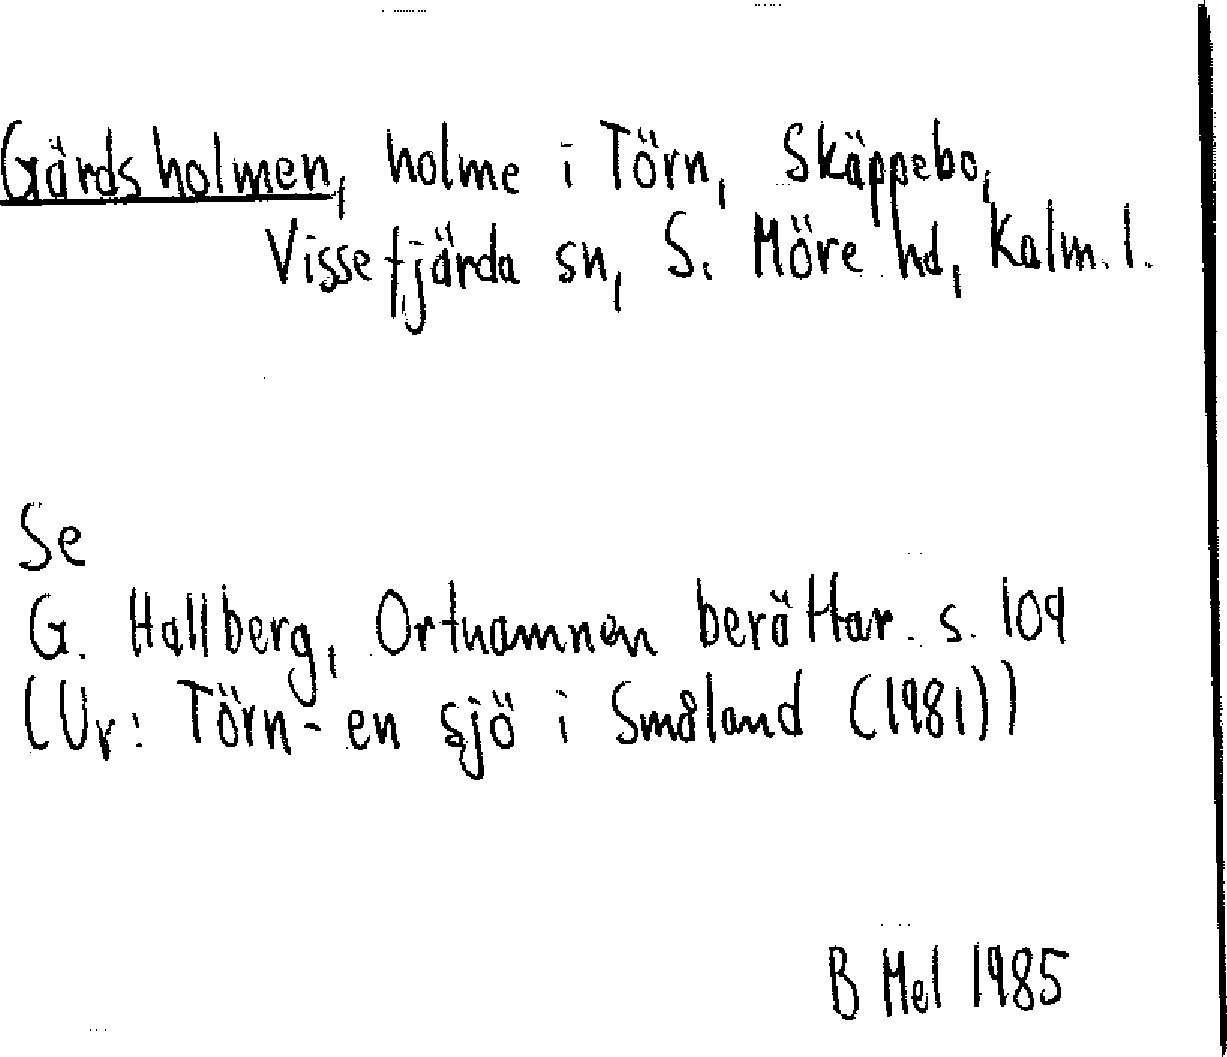 Gärdsholmen, holme i Törn, Skäppebo,
Vissefjärda sn, S. Möre hd, Kalm. l.
Se
G. Hallberg, Ortnamnen berättar s. 109
(Ur: Törn - en sjö i Småland (1981))
B Mel 1985